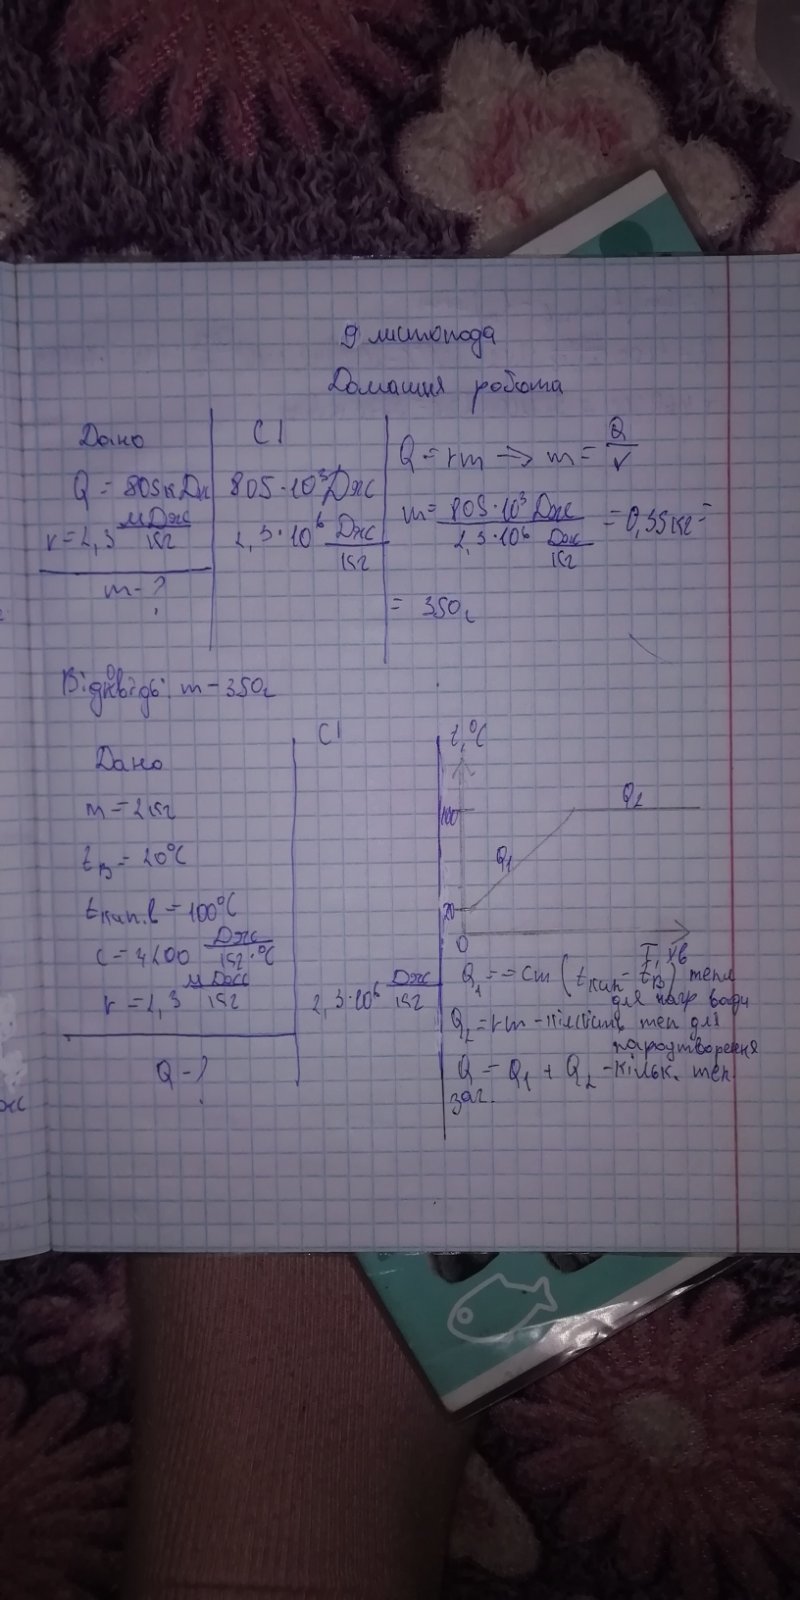 9 листопада
Домашня робота
Дано
СІ
Q = 805 кДж
805·10³ Дж
r = 2,3 мДж/кг
2,3·10⁶ Дж/кг
m - ?
Q = rm → m = Q/r
m = 805·10³ Дж / 2,3·10⁶ Дж/кг = 0,35 кг =
= 350г
Відповідь: m - 350г
Дано
СІ
m = 2 кг
tв = 20°C
tкип.в = 100°C
c = 4200 Дж/кг·°C
r = 2,3 мДж/кг
2,3·10⁶ Дж/кг
Q - ?
t,°C
100
Q2
Q1
20
0
T, хв
Q1 = = cm (tкип - tв) тепл
для нагр води
Q2 = rm - кількість теп для
пароутворення
Q = Q1 + Q2 - кільк. теп
заг.